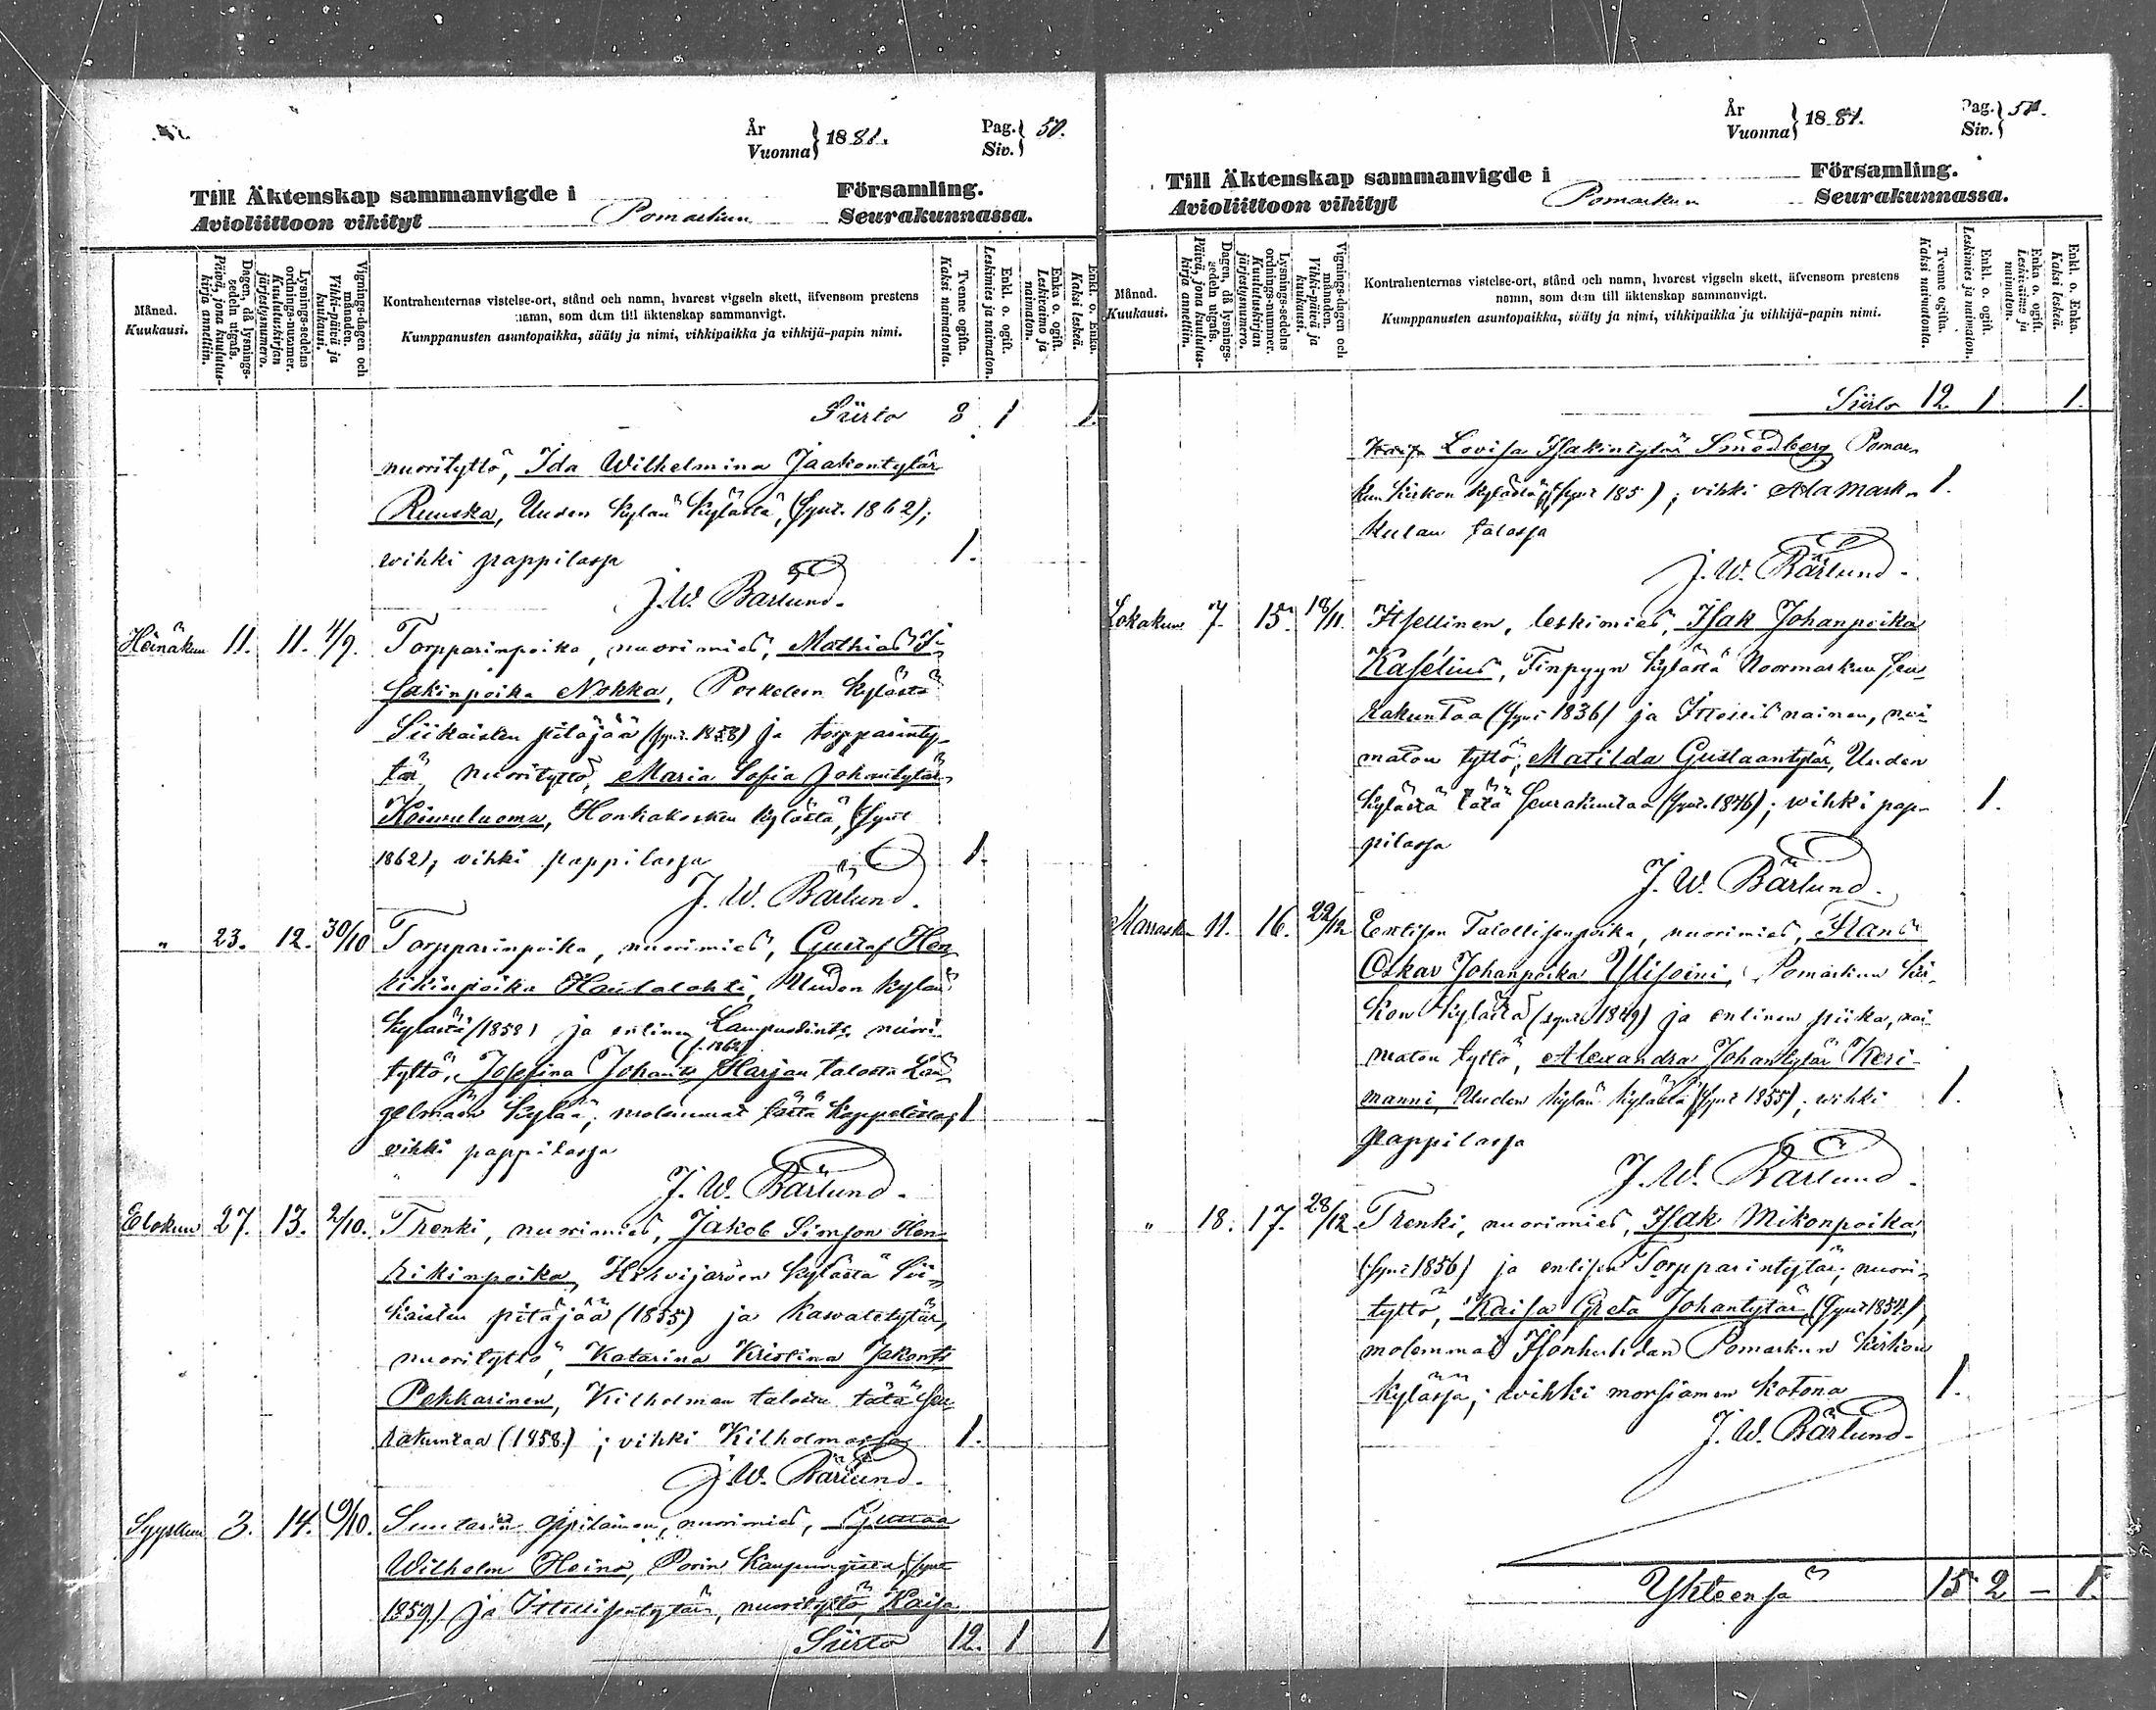 År
Vuonna } 1881.
Pag.
Siv. } 50.
Till Äktenskap sammanvigde i Församling.
Avioliittoon vihityt Pomarkun Seurakunnassa.
Månad.
Kuukausi.
Dagen, då lysnings-
sedeln utgafs.
Päivä, jona kuulutus-
kirja annettiin.
Lysnings-sedelns
ordnings-nummer.
Kuulutuskirjan
järjestysnumero.
Vignings-dagen och
månaden.
Vihki-päivä ja
kuukausi.
Kontrahenternas vistelse-ort, stånd och namn, hvarest vigseln skett, äfvensom prestens
namn, som dem till äktenskap sammanvigt.
Kumppanusten asuntopaikka, sääty ja nimi, vihkipaikka ja vihkijä-papin nimi.
Tvenne ogifta.
Kaksi naimatonta.
Enkl. o. ogift.
Leskimies ja naimaton.
Enka o. ogift.
Leskivaimo ja
naimaton.
Enkl. o. Enka.
Kaksi leskeä.
Siirto 8 1 1.
nuorityttö, Ida Wilhelmina Jaakontytär
Ruuska, Uuden kylän kylästä, (synt. 1862);
wihki pappilassa 1.
J. W. Bärlund.
Heinäkuu 11. 11. 4/9. Torpparinpoika, nuorimies, Mathias I-
sakinpoika Nokka, Poskelon kylästä
Siikaisten pitäjää (synt. 1858) ja torpparinty-
tär, nuorityttö, Maria Sofia Johantytär
Koivuluoma, Honkakosken kylästä, (synt
1862), vihki pappilassa 1.
J. W. Bärlund.
" 23. 12. 30/10 Torpparinpoika, nuorimies, Gustaf Hen
rikinpoika Hautalahti, Uuden kylän
kylästä (1858) ja entinen nuori
(s. 1862)
tyttö, Josefina Johant. Harjan talosta Län
gelmään kylää; molemmat tästä kappelista, 1
vihki pappilassa
J. W. Bärlund.
Elokuu 27. 13. 2/10. Trenki, nuorimies, Jakob Simson Hen-
rikinpoika, Hirvijärven kylästä Sii-
kaisten pitäjää (1855) ja kasvatetytär,
nuorityttö, Katarina Kristina Jakonts
Pekkarinen, Kilholman talosta tätä seu
rakuntaa (1858.); vihki Kilholmassa 1.
J. W. Bärlund.
Syyskuu 3. 14. 9/10. Suutarin oppilainen, nuorimies, Gustaa
Wilhelm Heino, Porin kaupungista, (synt
1859) ja Itsellisentytär, nuorityttö, Kaisa
Siirto 12. 1 1
År
Vuonna } 1881.
Pag.
Siv. } 51.
Till Äktenskap sammanvigde i Församling.
Avioliittoon vihityt Pomarkun Seurakunnassa.
Månad.
Kuukausi.
Dagen, då lysnings-
sedeln utgafs.
Päivä, jona kuulutus-
kirja annettiin.
Lysnings-sedelns
ordnings-nummer.
Kuulutuskirjan
järjestysnumero.
Vignings-dagen och
månaden.
Vihki-päivä ja
kuukausi.
Kontrahenternas vistelse-ort, stånd och namn, hvarest vigseln skett, äfvensom prestens
namn, som dem till äktenskap sammanvigt.
Kumppanusten asuntopaikka, sääty ja nimi, vihkipaikka ja vihkijä-papin nimi.
Tvenne ogifta.
Kaksi naimatonta.
Enkl. o. ogift.
Leskimies ja naimaton.
Enka o. ogift.
Leskivaimo ja
naimaton.
Enkl. o. Enka.
Kaksi leskeä.
Siirto 12. 1 1.
Lovisa Isakintytär Smedberg Pomar-
kun kirkon kylästä (synt 185 ); vihki Ala Mark- 1.
kulan talossa
J. W. Bärlund.
Lokakuu 7. 15. 18/11. Itsellinen, leskimies, Isak Johanpoika
Kaselius, Finpyyn kylästä Noormarkun seu
rakuntaa (synt 1836) ja Itsellisnainen, nai
maton tyttö, Matilda Gustaantytär, Uuden
kylästä tätä seurakuntaa (synt. 1846); wihki pap- 1.
pilassa
J. W. Bärlund.
Marrask. 11. 16. 22/12 Entisen Talollisenpoika, nuorimies, Frans
Oskar Johanpoika Ylisoini, Pomarkun kir-
kon kylästä (synt. 1849) ja entinen piika, nai
maton tyttö, Alexandra Johantytär Keri-
manni, Uuden kylän kylästä (synt 1855); wihki 1.
pappilassa
J. W. Bärlund.
" 18. 17. 28/12 Trenki, nuorimies, Isak Mikonpoika,
(synt 1856) ja entisen Torpparintytär, nuori-
tyttö, Kaisa Greta Johantytär (synt 1854.),
molemmat Isonhuhdan Pomarkun kirkon
kylässä; wihki morsiamen kotona 1.
J. W. Bärlund.
Yhteensä 15 2 - 1.